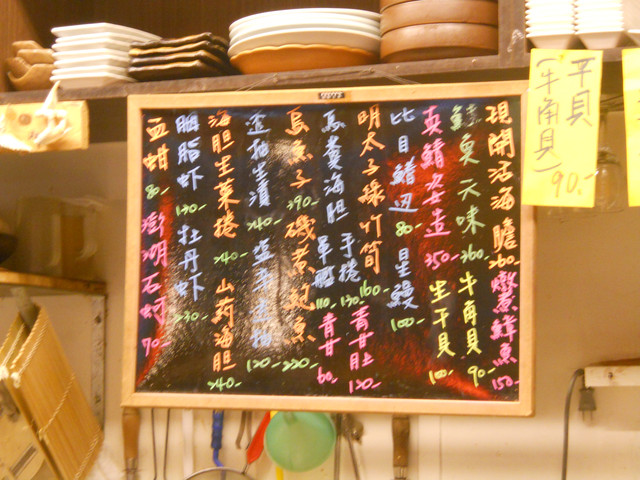 現開活海膽 260- 燉煮鮮魚 150-
鮭魚 天味 360- 牛角貝 90-
真鯖姿造 350- 生干貝 100-
比目鰭邊 80- 星鰻 100-
明太子綠竹筍 160- 青甘肚 120-
馬糞海胆 手捲 130- 單點 110- 青甘 60-
烏魚子 390- 磯煮魚 220-
240- 120-
海胆生菜捲 240- 山葯海胆 240-
胭脂蝦 130- 牡丹蝦 230-
血蚶 80- 澎湖石蚵 70-
干貝
牛角貝 90-